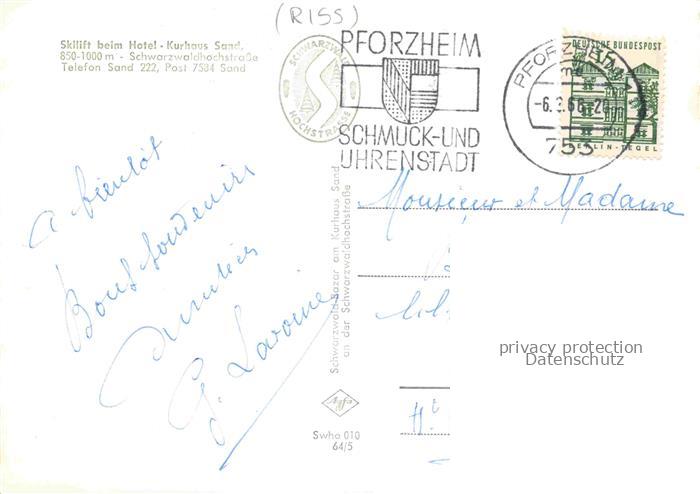 (RISS)
Skilift beim Hotel - Kurhaus Sand,
850-1000 m - Schwarzwaldhochstraße
Telefon Sand 222, Post 7584 Sand
SCHWARZWALD
HOCHSTRASSE
PFORZHEIM
SCHMUCK-UND
UHRENSTADT
PFORZHEIM
-6.3.66-20
753
DEUTSCHE BUNDESPOST
BERLIN-TEGEL
a bientôt
Bons souvenirs
amitiés
G. Lavoine
Schwarzwald-Bazar am Kurhaus Sand
an der Schwarzwaldhochstraße
Agfa
Swho 010
64/5
Monsieur et Madame
privacy protection
Datenschutz
Ht